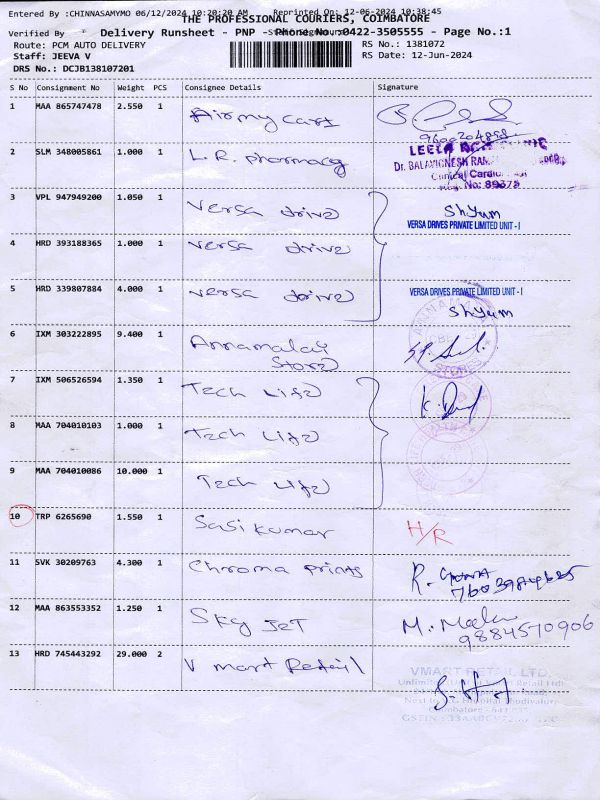 Entered By :CHINNASAMYMO 06/12/2024 10:20:20 AM Reprinted On: 12-06-2024 10:38:45
THE PROFESSIONAL COURIERS, COIMBATORE
Verified By Delivery Runsheet - PNP - Phone No.:0422-3505555 - Page No.:1
Route: PCM AUTO DELIVERY RS No.: 1381072
Staff: JEEVA V RS Date: 12-Jun-2024
DRS No.: DCJB138107201
S No Consignment No Weight PCS Consignee Details Signature
1 MAA 865747478 2.550 1 Airmy Cart
9600204858
2 SLM 348005861 1.000 1 L.R. pharmacy LEELA
Dr. BALAVIGNESH
Clinical Cardiol
Reg. No: 89375
3 VPL 947949200 1.050 1 Versa drive Shyum
VERSA DRIVES PRIVATE LIMITED UNIT - I
4 HRD 393188365 1.000 1 Versa drive
5 HRD 339807884 4.000 1 Versa drive VERSA DRIVES PRIVATE LIMITED UNIT - I
Shyum
6 IXM 303222895 9.400 1 Annamalai
Store STORES
7 IXM 506526594 1.350 1 Tech Life
8 MAA 704010103 1.000 1 Tech Life
9 MAA 704010086 10.000 1 Tech Life
10 TRP 6265690 1.550 1 Sasi kumar H/R
11 SVK 30209763 4.300 1 Chroma prints R.
12 MAA 863553352 1.250 1 Sky JET M.
9884570906
13 HRD 745443292 29.000 2 V mart Retail VMART RETAIL LTD.